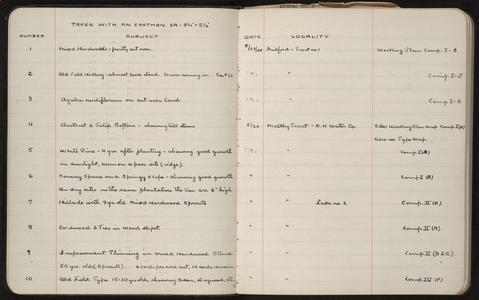 TAKEN WITH AN EASTMAN 3A - 3¼" × 5½"
NUMBER SUBJECT DATE LOCALITY
1 Mixed Hardwoods - partly cut over. Guilford - Tract no 1 Working Plan Comp. I - C
2 Old Field Hickory - almost pure stand. " Comp. I - J
3 Azalea nudiflorum on cut over land " Comp. I - B
4 Chestnut & Tulip Bottom - showing tall stems 5/24 Maltby Tract - N.H. Water Co. Working Plan Map Comp I
Also see Type Map
5 White Pine - 4 yrs after planting - showing good growth " Comp I (A)
in sunlight, even on a poor site (ridge).
6 Norway Spruce on a Springy Slope - showing good growth " " Comp I (B)
On dry sites in the same plantation the trees are 6" high
7 Hillside with 9 yr old Mixed Hardwood Sprouts " " Lake no. 2 Comp. II (E)
8 Cordwood & Ties in Wood depot. " " Comp. II (A)
9 Improvement Thinning in mixed Hardwood Stand " " Comp. II (B & C)
50 yrs. old (Sprouts). 6 cords per acre cut, 14 cords remain
10 Old Field Type 15-30 yrs old, showing Cedar, Dogwood, etc. " " Comp IV (F)